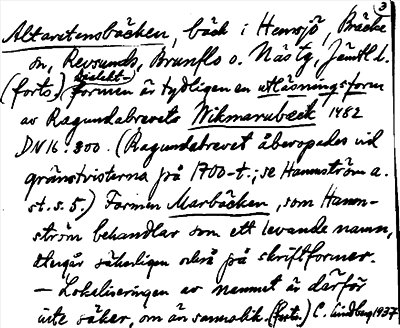 ③
Altaretensbäcken, bäck i Hemsjö, Bräcke
sn, Revsunds, Brunflo o. Näs tg, Jämtl. l.
(forts.) dialekt-formen är tydligen en utläsningsform
av Ragundabrevets Wikmarubæck 1482
DN 16:300. (Ragundabrevet åberopades vid
gränstvisterna på 1700-t.; se Hammström a.
st. s. 5.) Formen Marbäcken, som Hamm-
ström behandlar som ett levande namn,
återgår säkerligen också på skriftformer.
— Lokaliseringen av namnet är därför
icke säker, om än sannolik. (forts.) C. Lindberg 1937